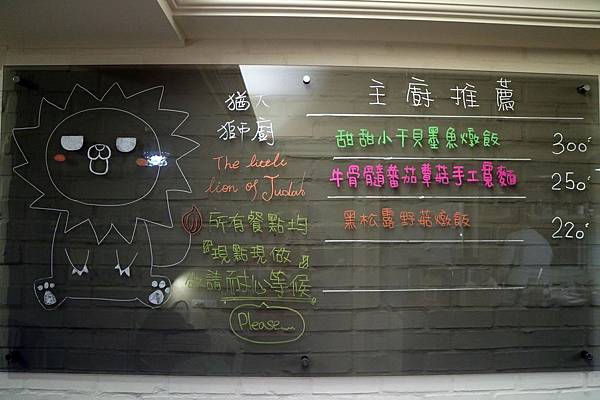 猶大
獅廚
The little
lion of Judah
所有餐點均
『現點現做』
敬請耐心等候
Please
主廚推薦
甜甜小干貝墨魚燉飯 300
牛骨髓蕃茄蘑菇手工寬麵 250
黑松露野菇燉飯 220